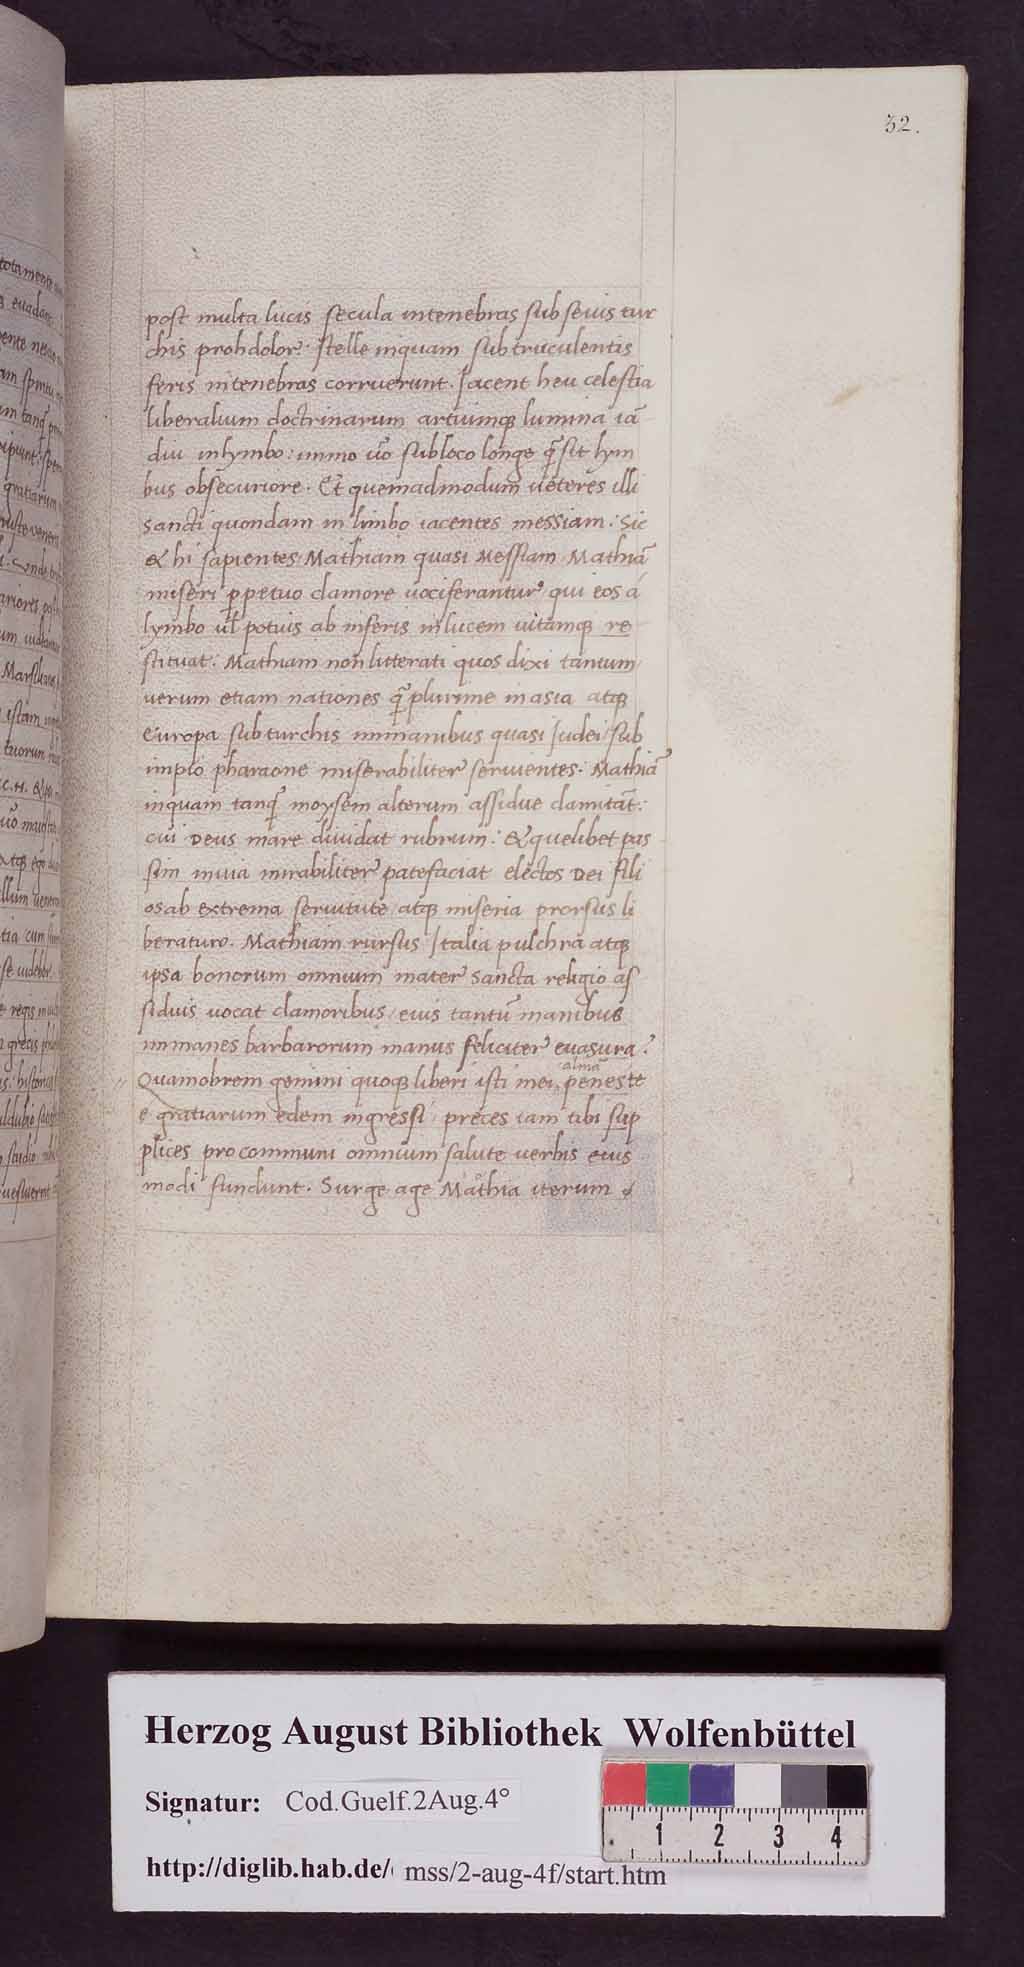 32.
post multa lucis secula intenebras sub sevis tur
chis proh dolor: stelle inquam sub truculentis
feris intenebras corruerunt. Jacent heu celestia
liberalium doctrinarum artiumq lumina iā
diu inlymbo: immo uo sub loco longe q̄ sit lym
bus obsecuriore. Et quemadmodum ueteres illi
sancti quondam in limbo iacentes messiam: Sic
& hi sapientes Mathiam quasi Messiam Mathiā
miseri ppetuo clamore uociferantur qui eos á
lymbo ul potius ab inferis inlucem uitamq re
stituat. Mathiam non litterati quos dixi tantum
uerum etiam nationes q̄ plurime in asia atq
Europa sub turchis immanibus quasi Judei sub
impio pharaone miserabiliter seruientes. Mathiā
inquam tanq̄ moysem alterum assidue clamitāt:
cui Deus mare diuidat rubrum: & quelibet pas
sim inuia mirabiliter patefaciat electos Dei fili
os ab extrema seruitute / atq miseria prorsus li
beraturo. Mathiam rursus Italia pulchra atq
ipsa bonorum omnium mater sancta religio as
siduis uocat clamoribus / eius tantū manibus
immanes barbarorum manus feliciter euasura.
Quamobrem gemini quoq liberi isti mei, almā peneste
e gratiarum edem ingressi preces iam tibi sup
plices pro communi omnium salute uerbis eius
modi fundunt. Surge age Mathia iterum
Herzog August Bibliothek Wolfenbüttel
Signatur: Cod.Guelf.2Aug.4°
1 2 3 4
http://diglib.hab.de/ mss/2-aug-4f/start.htm